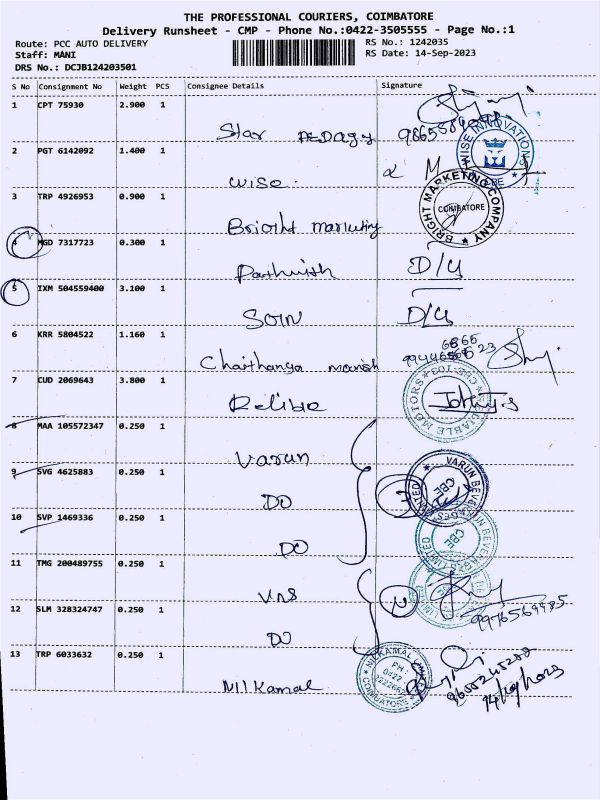 THE PROFESSIONAL COURIERS, COIMBATORE
Delivery Runsheet - CMP - Phone No.:0422-3505555 - Page No.:1
Route: PCC AUTO DELIVERY RS No.: 1242035
Staff: MANI RS Date: 14-Sep-2023
DRS No.: DCJB124203501
S No Consignment No Weight PCS Consignee Details Signature
1 CPT 75930 2.900 1
Star
WISE INNOVATIONS CBE
2 PGT 6142092 1.400 1
wise.
3 TRP 4926953 0.900 1
BRIGHT MARKETING COMPANY COIMBATORE
Bright
4 MGD 7317723 0.300 1
D/U
5 IXM 504559400 3.100 1
D/U
6 KRR 5804522 1.160 1
Chaithanya
7 CUD 2069643 3.800 1
8 MAA 105572347 0.250 1
Varun
9 SVG 4625883 0.250 1
VARUN BEVERAGES LIMITED CBE
DO
10 SVP 1469336 0.250 1
VARUN BEVERAGES LIMITED CBE
DO
11 TMG 200489755 0.250 1
VNS
9976569985
12 SLM 328324747 0.250 1
DO
13 TRP 6033632 0.250 1
NILKAMAL COIMBATORE PH 0422
Nilkamal
14/09/2023